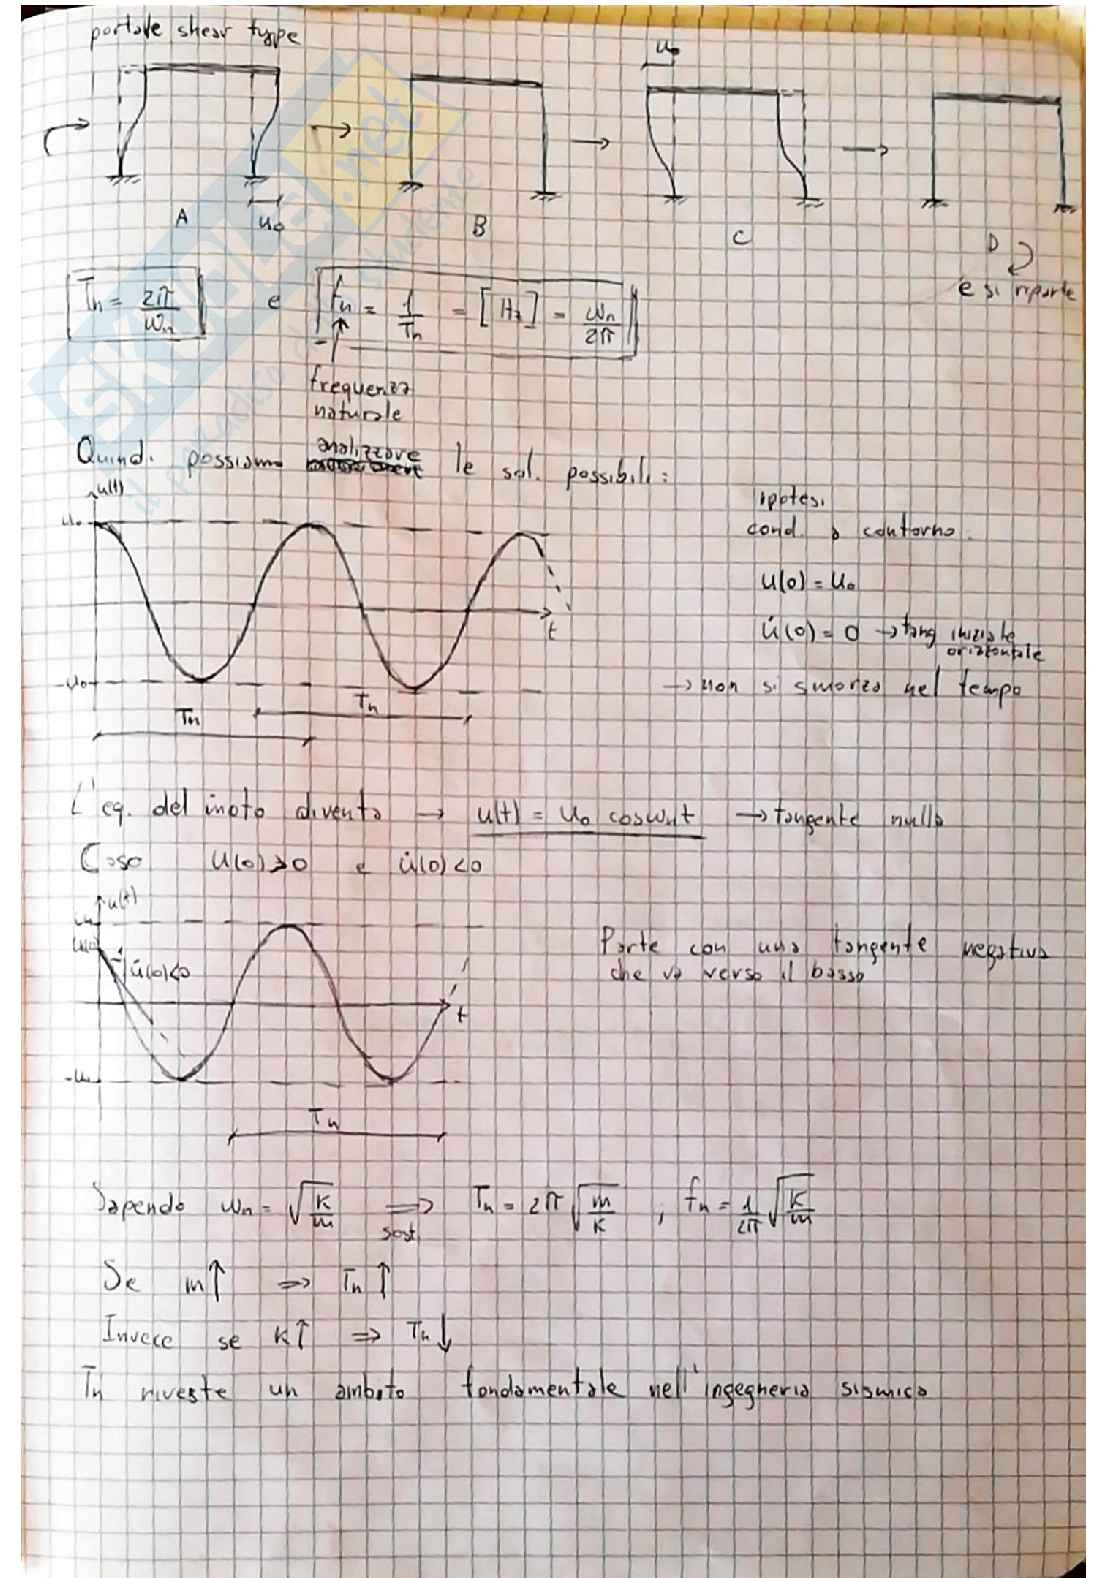 portale shear type
u₀
A
u₀
B
C
D
e si riparte
Tn = 2π/ωn e fn = 1/Tn = [Hz] = ωn/2π
frequenza
naturale
Quindi possiamo analizzare le sol. possibili:
u(t)
u₀
t
-u₀
Tn
Tn
ipotesi
cond. a contorno:
u(0) = u₀
u̇(0) = 0 → tang iniziale
orizzontale
→ non si smorza nel tempo
L'eq. del moto diventa → u(t) = u₀ cosωnt → tangente nulla
Caso u(0)>0 e u̇(0)<0
u(t)
u₀
u(0)
u̇(0)<0
t
-u₀
Tn
Parte con una tangente negativa
che va verso il basso
Sapendo ωn = √(k/m) ⟹ Tn = 2π √(m/k) ; fn = 1/2π √(k/m)
sost.
Se m↑ ⇒ Tn ↑
Invece se k↑ ⇒ Tn ↓
Tn riveste un ambito fondamentale nell'ingegneria sismica
SKUOLA.net
il paradiso dello studente